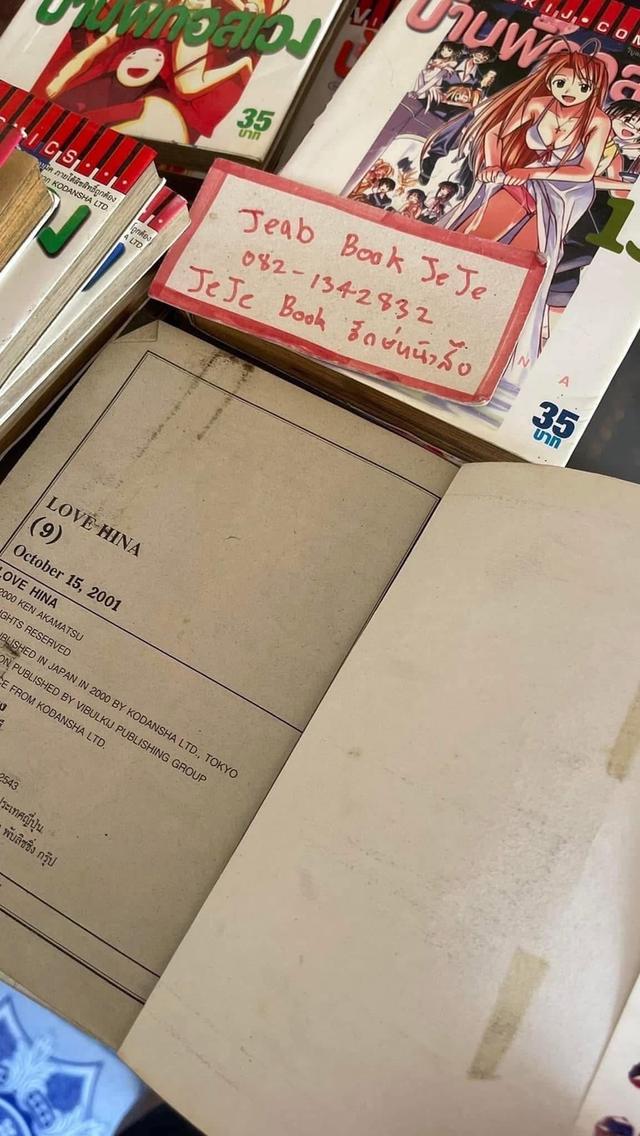 บ้านพักอลเวง
35
บาท
KIJ.COM
บ้านพักอล
13
35
บาท
ICS
KODANSHA LTD.
Jeab Book JeJe
082-1342832
JeJe Book
N A
LOVE HINA
(9)
October 15, 2001
LOVE HINA
2000 KEN AKAMATSU
IGHTS RESERVED
BLISHED IN JAPAN IN 2000 BY KODANSHA LTD., TOKYO
ON PUBLISHED BY VIBULKIJ PUBLISHING GROUP
CE FROM KODANSHA LTD.
2543
ประเทศญี่ปุ่น
พับลิชชิ่ง กรุ๊ป